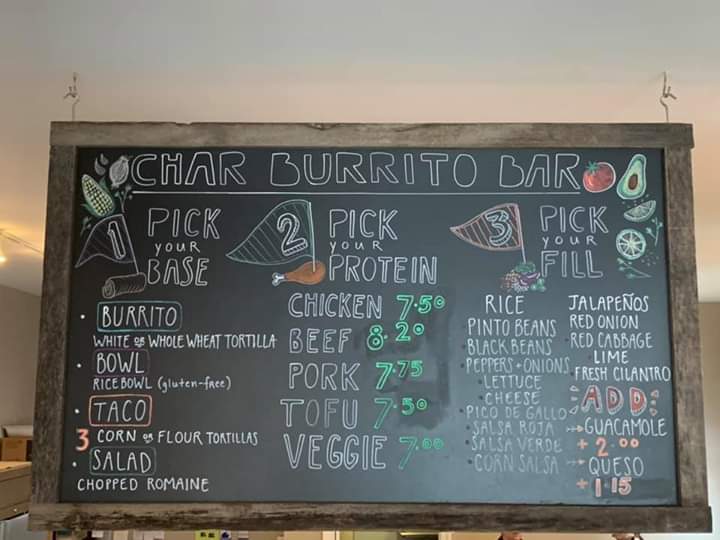 CHAR BURRITO BAR
1
PICK
YOUR
BASE
• BURRITO
WHITE OR WHOLE WHEAT TORTILLA
• BOWL
RICE BOWL (gluten-free)
• TACO
3 CORN OR FLOUR TORTILLAS
• SALAD
CHOPPED ROMAINE
2
PICK
YOUR
PROTEIN
CHICKEN 7.50
BEEF 8.20
PORK 7.75
TOFU 7.50
VEGGIE 7.00
3
PICK
YOUR
FILL
RICE
PINTO BEANS
BLACK BEANS
PEPPERS + ONIONS
LETTUCE
CHEESE
PICO DE GALLO
SALSA ROJA
SALSA VERDE
CORN SALSA
JALAPEÑOS
RED ONION
RED CABBAGE
LIME
FRESH CILANTRO
ADD
GUACAMOLE
+ 2.00
QUESO
+ 1.15